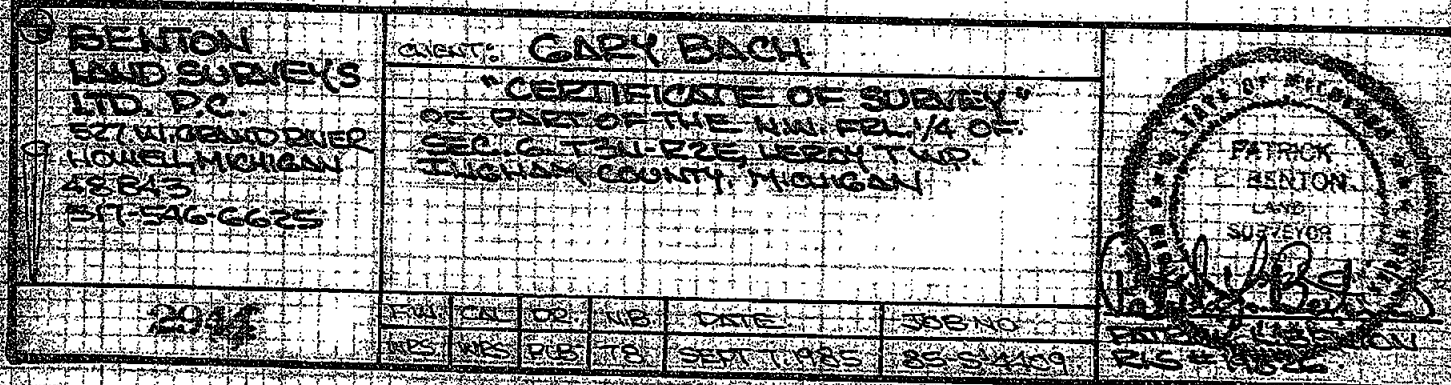 BENTON
LAND SURVEYS
LTD. P.C.
527 W. GRAND RIVER
HOWELL, MICHIGAN
48843
517-546-6625
CLIENT: GARY BACH
"CERTIFICATE OF SURVEY"
OF PART OF THE N.W. FRL. 1/4 OF
SEC. 6, T3N-R2E, LEROY TWP.
INGHAM COUNTY, MICHIGAN
F.W. CAL DR. N/B DATE JOB NO
WRS PLB 78 SEPT 7, 1985
STATE OF MICHIGAN
PATRICK
BENTON
LAND
SURVEYOR
BENTON
RLS #